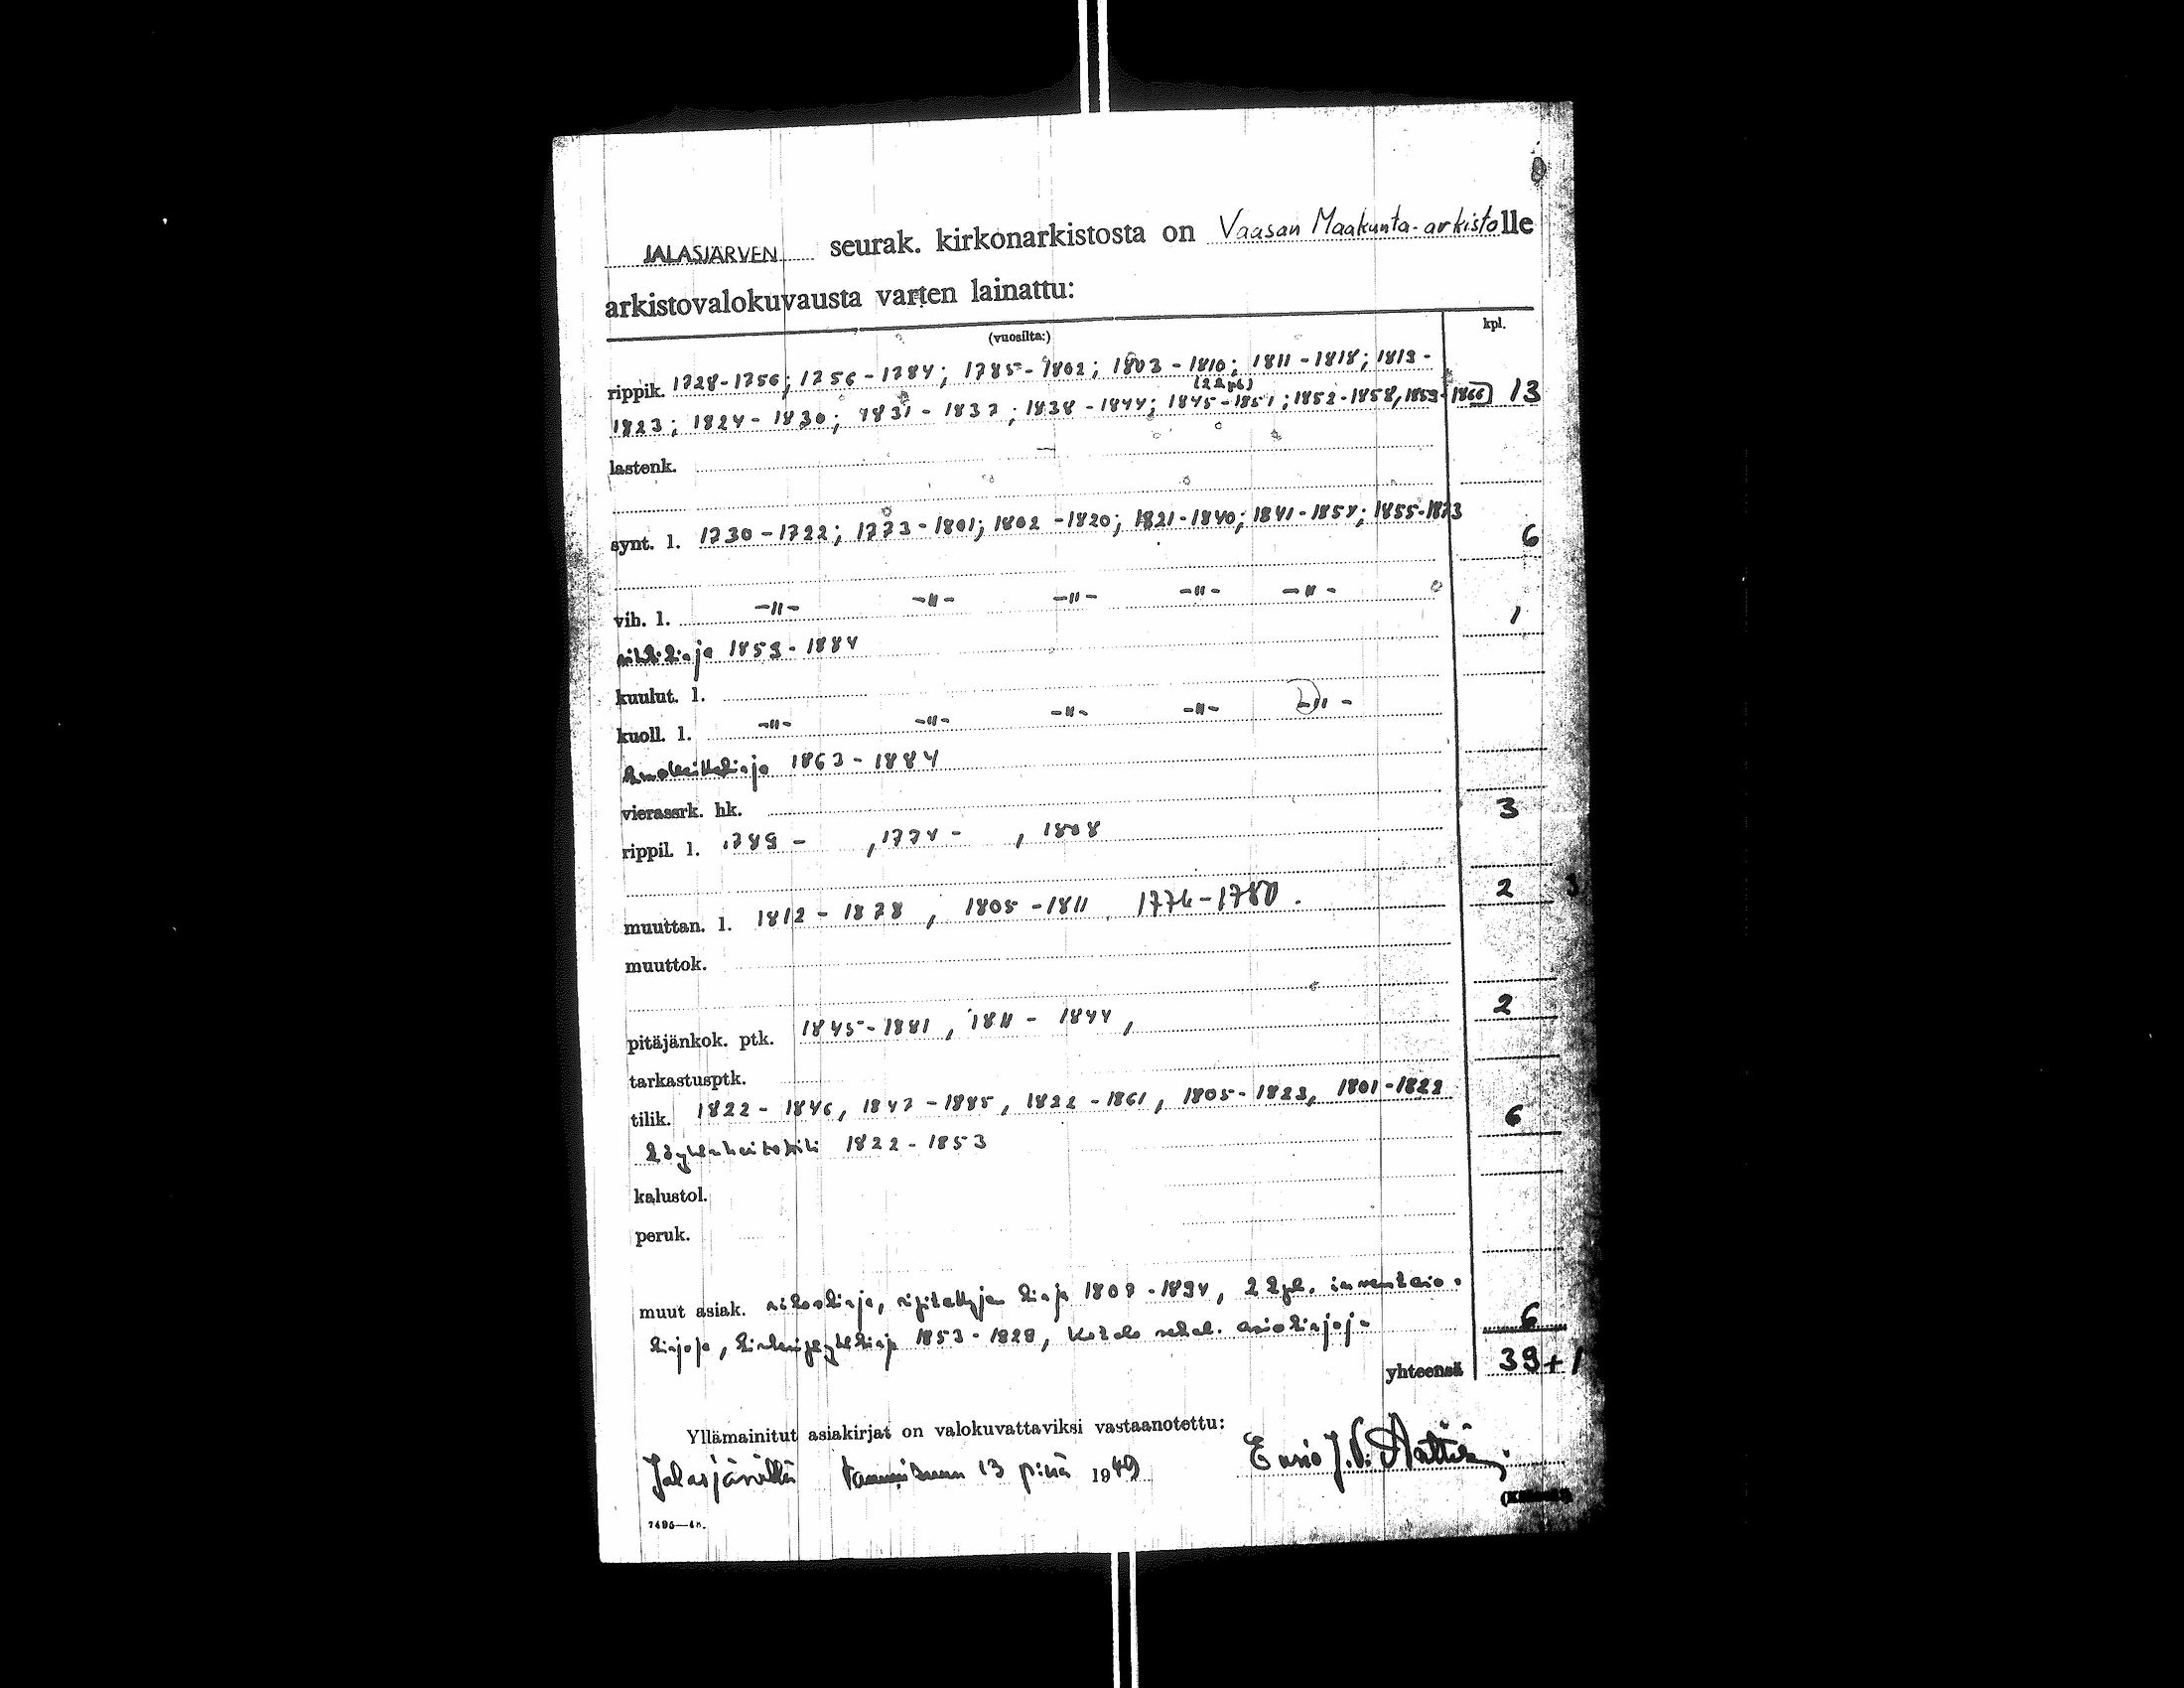 JALASJÄRVEN seurak. kirkonarkistosta on Vaasan Maakunta-arkistolle
arkistovalokuvausta varten lainattu:
(vuosilta:) kpl.
rippik. 1728-1756; 1756-1784; 1785-1802; 1803-1810; 1811-1818; 1819-
(2 kpl)
1823; 1824-1830; 1831-1837; 1838-1844; 1845-1851; 1852-1858, 1859-1866 13
lastenk. —
synt. l. 1730-1772; 1773-1801; 1802-1820; 1821-1840; 1841-1854; 1855-1873 6
vih. l. -"- -"- -"- -"- -"- 1
vihkikirja 1853-1884
kuulut. l.
kuoll. l. -"- -"- -"- -"- -"-
1863-1884
vierassrk. hk. 3
rippil. l. 1789 - , 1774 - , 1808
muuttan. l. 1812-1878, 1805-1811, 1774-1780. 2 3
muuttok.
pitäjänkok. ptk. 1845-1881, 1811-1844, 2
tarkastusptk.
tilik. 1822-1846, 1847-1885, 1822-1861, 1805-1823, 1801-1822 6
Köyhäinhoitotili 1822-1853
kalustol.
peruk.
muut asiak. ripitettyjen kirja 1809-1894, 2 kpl. inventario-
kirjoja, 1853-1828, Kotelo sekal. asiakirjoja 6
yhteensä 39+1
Yllämainitut asiakirjat on valokuvattaviksi vastaanotettu:
Jalasjärvellä tammikuun 13 p:nä 1949
Ensio J. V.
7495—48.